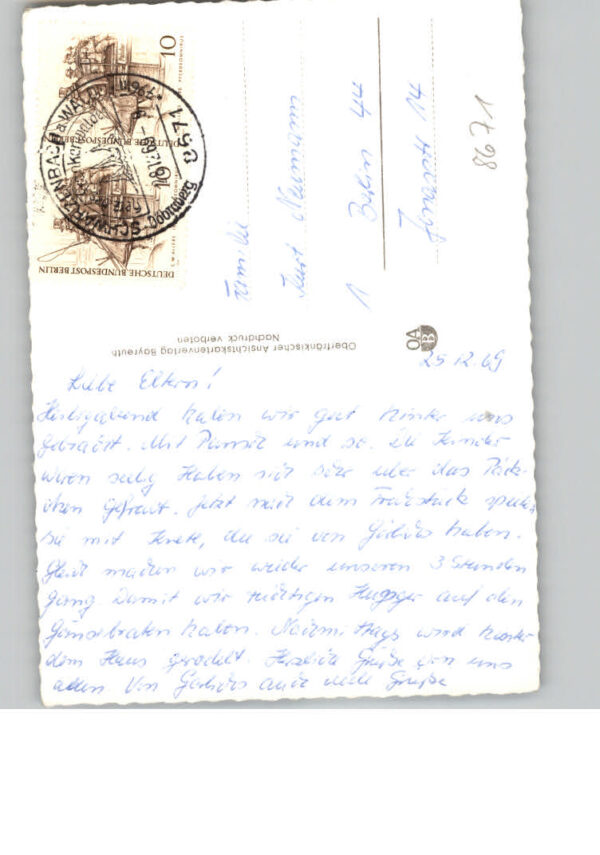 10
DEUTSCHE BUNDESPOST BERLIN
DEUTSCHE BUNDESPOST BERLIN
8671
SCHWARZENBACH a. WALD
Familie
Kurt Neumann
1 Berlin 44
Jonasstr 14
8671
Oberfränkischer Ansichtskartenverlag Bayreuth
Nachdruck verboten
OA
B
25.12.69
Liebe Eltern!
Heiligabend haben wir gut hinter uns
gebracht. Mit Punsch und so. Die Kinder
waren selig Haben sich sehr über das Päck-
chen gefreut. Jetzt nach dem Frühstück spielen
sie mit Knete, die sie von Gerhards haben.
Gleich machen wir wieder unseren 3 Stunden
gang. Damit wir richtigen Hunger auf den
Gänsebraten haben. Nachmittags wird hinter
dem Haus gerodelt. Herzliche Grüße von uns
allen Von Gerhards auch viele Grüße